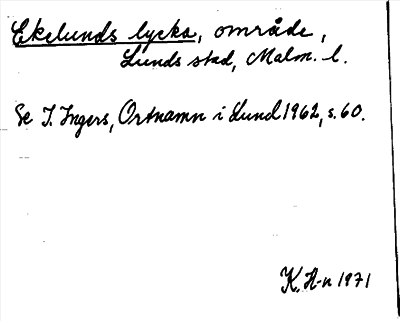 Ekelunds lycka, område,
Lunds stad, Malm. l.
Se I. Ingers, Ortnamn i Lund 1962, s. 60.
K. H-n 1971